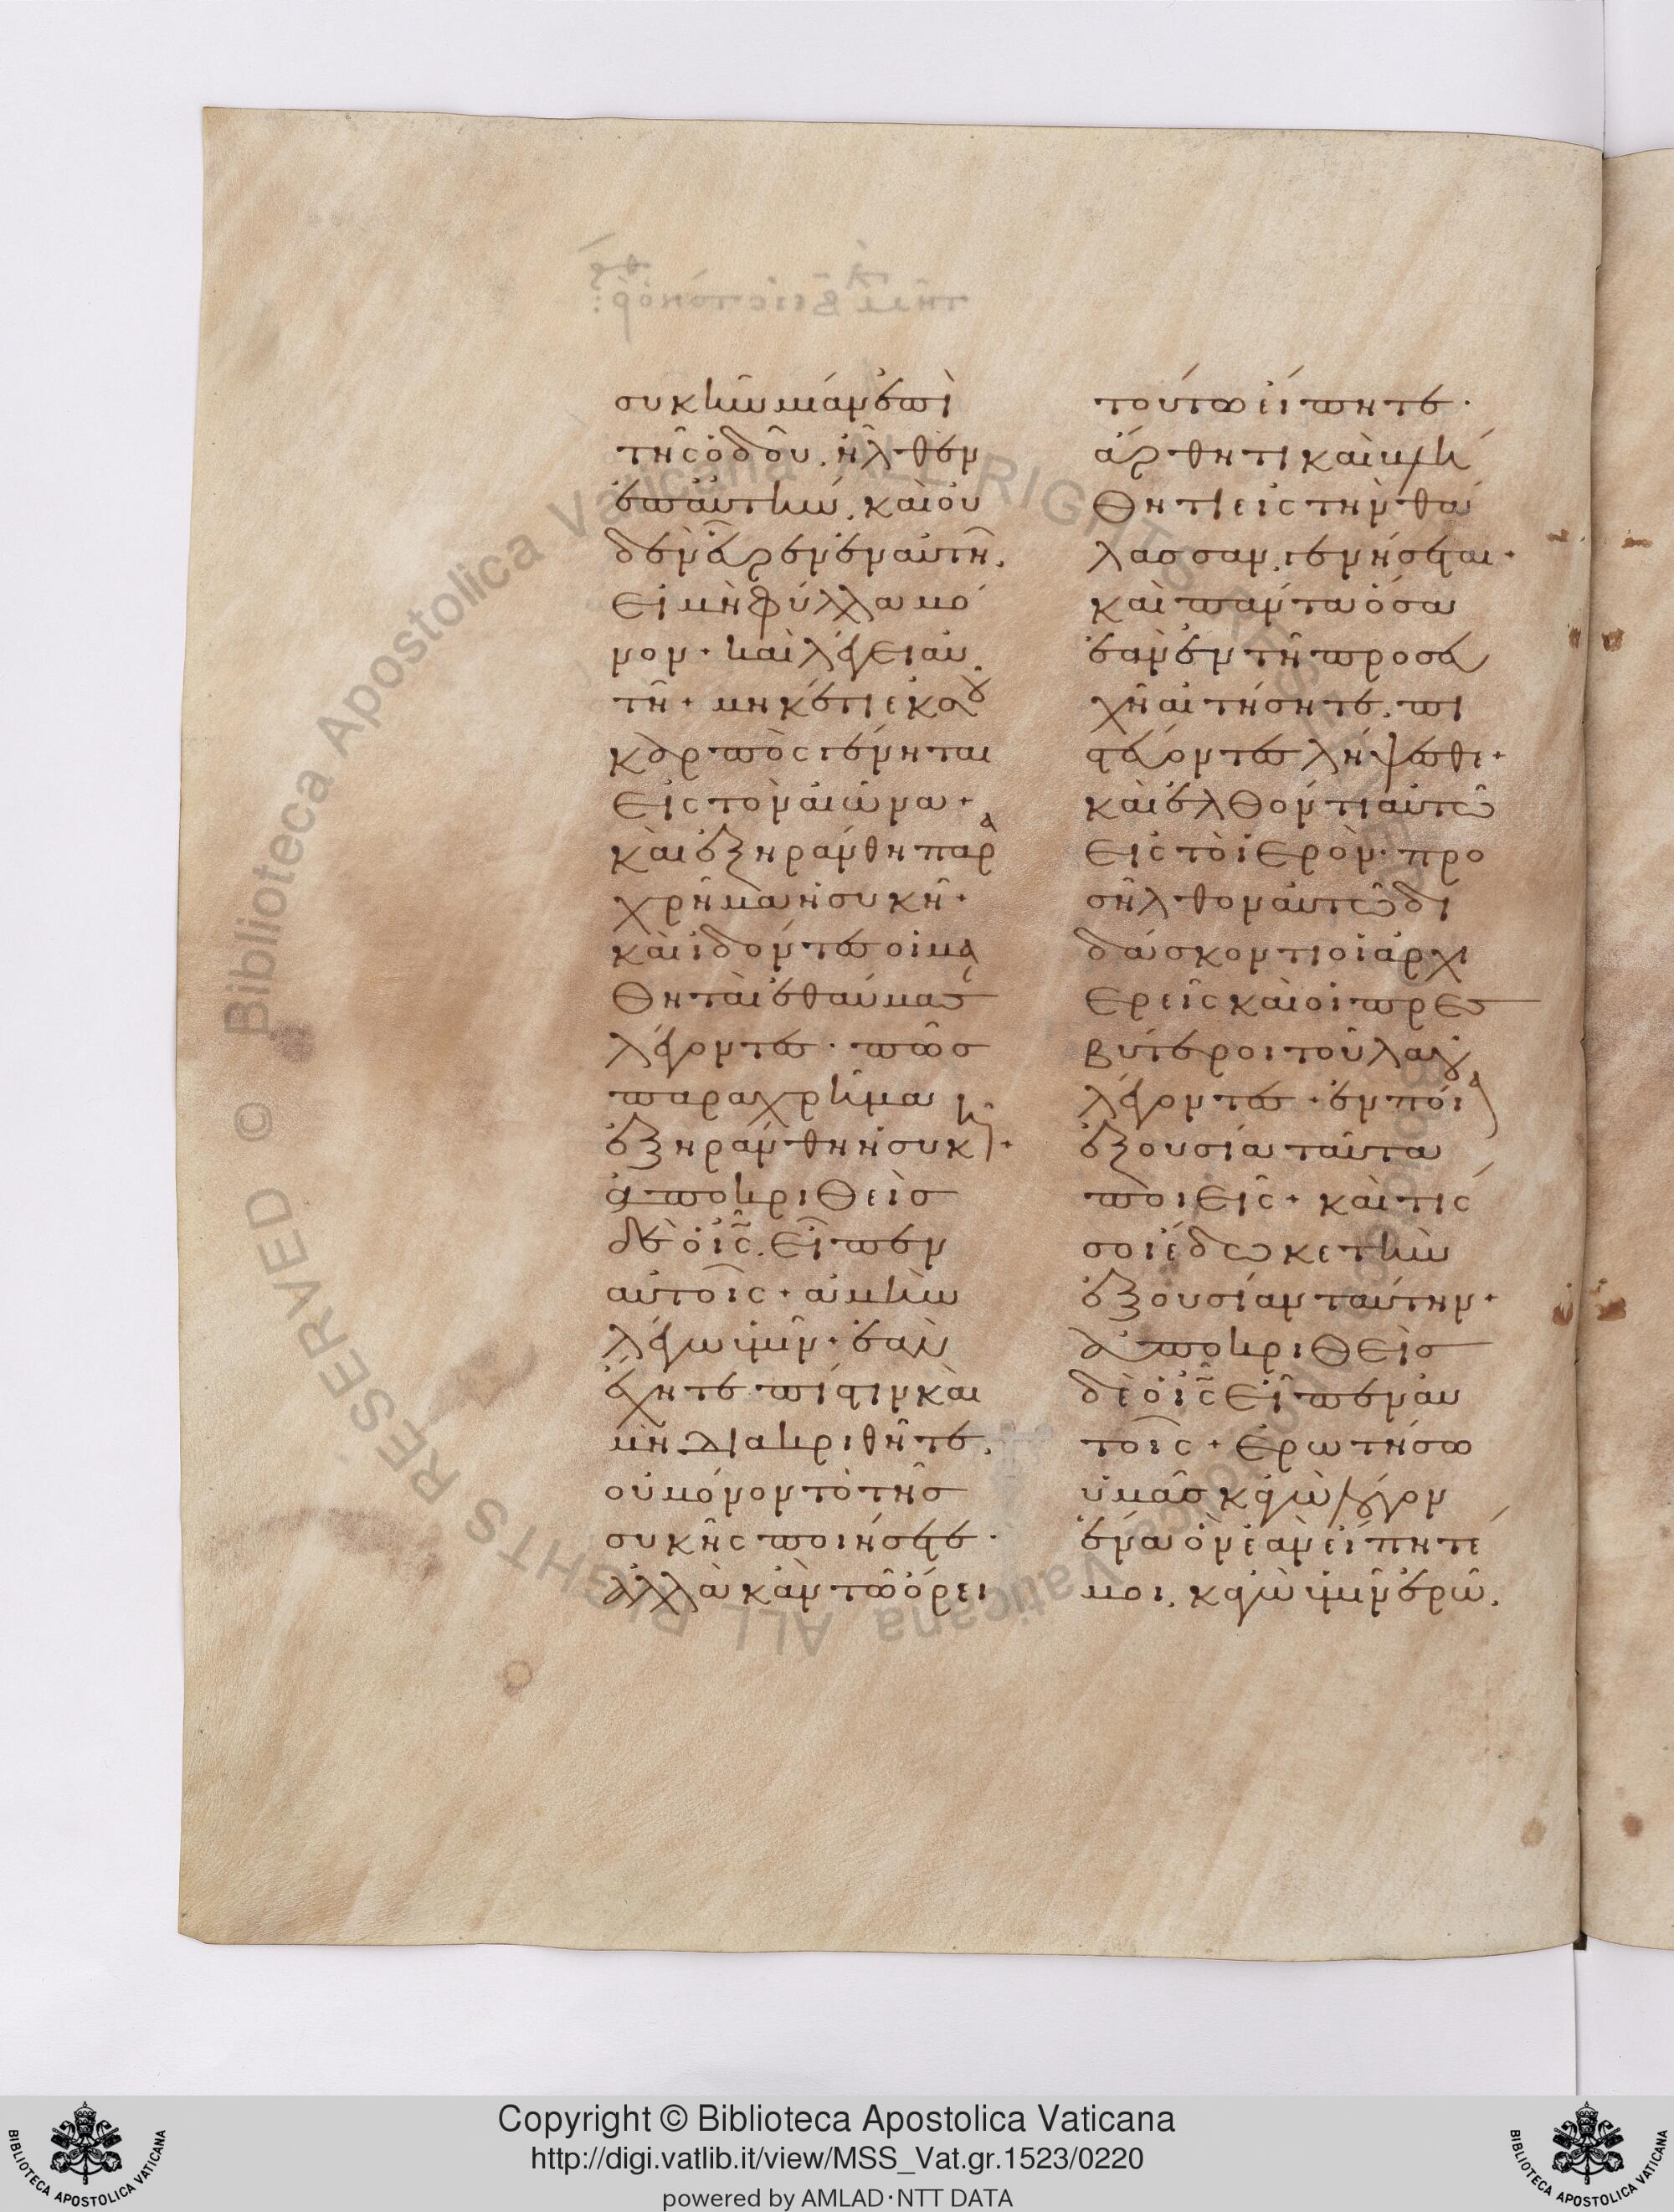 συκῆν μίαν ἐπὶ
τῆς ὁδοῦ, ἦλθεν
ἐπ' αὐτὴν, καὶ οὐ
δὲν εὗρεν ἐν αὐτῇ,
εἰ μὴ φύλλα μό
νον· καὶ λέγει αὐ
τῇ· μηκέτι ἐκ σοῦ
καρπὸς γένηται
εἰς τὸν αἰῶνα·
καὶ ἐξηράνθη παρα
χρῆμα ἡ συκῆ·
καὶ ἰδόντες οἱ μα
θηταὶ ἐθαύμασ
λέγοντες· πῶς
παραχρῆμα
ἐξηράνθη ἡ συκῆ·
ἀποκριθεὶς
δὲ ὁ ις, εἶπεν
αὐτοῖς· ἀμὴν
λέγω ὑμῖν· ἐὰν
ἔχητε πίστιν καὶ
μὴ διακριθῆτε,
οὐ μόνον τὸ τῆς
συκῆς ποιήσετε·
ἀλλὰ κἂν τῷ ὄρει
τούτω εἴπητε·
ἄρθητι καὶ βλή
θητι εἰς τὴν θά
λασσαν, γενήσεται·
καὶ πάντα ὅσα
ἐὰν ἐν τῇ προσευ
χῇ αἰτήσητε, πι
στεύοντες λήψεσθε·
καὶ ἐλθόντι αὐτῷ
εἰς τὸ ἱερὸν· προ
σῆλθον αὐτῷ δι
δάσκοντι οἱ ἀρχι
ερεῖς καὶ οἱ πρεσ
βύτεροι τοῦ λαοῦ
λέγοντες· ἐν ποία
ἐξουσία ταῦτα
ποιεῖς· καὶ τίς
σοι ἔδωκε τὴν
ἐξουσίαν ταύτην·
ἀποκριθεὶς
δὲ ὁ ις εἶπεν αὐ
τοῖς· ἐρωτήσω
ὑμᾶς κἀγὼ λόγον
ἕνα ὃν ἐὰν εἴπητέ
μοι, κἀγὼ ὑμῖν ἐρῶ,
© Biblioteca Apostolica Vaticana ALL RIGHTS RESERVED
Copyright © Biblioteca Apostolica Vaticana
http://digi.vatlib.it/view/MSS_Vat.gr.1523/0220
powered by AMLAD·NTT DATA
BIBLIOTECA APOSTOLICA VATICANA
BIBLIOTECA APOSTOLICA VATICANA